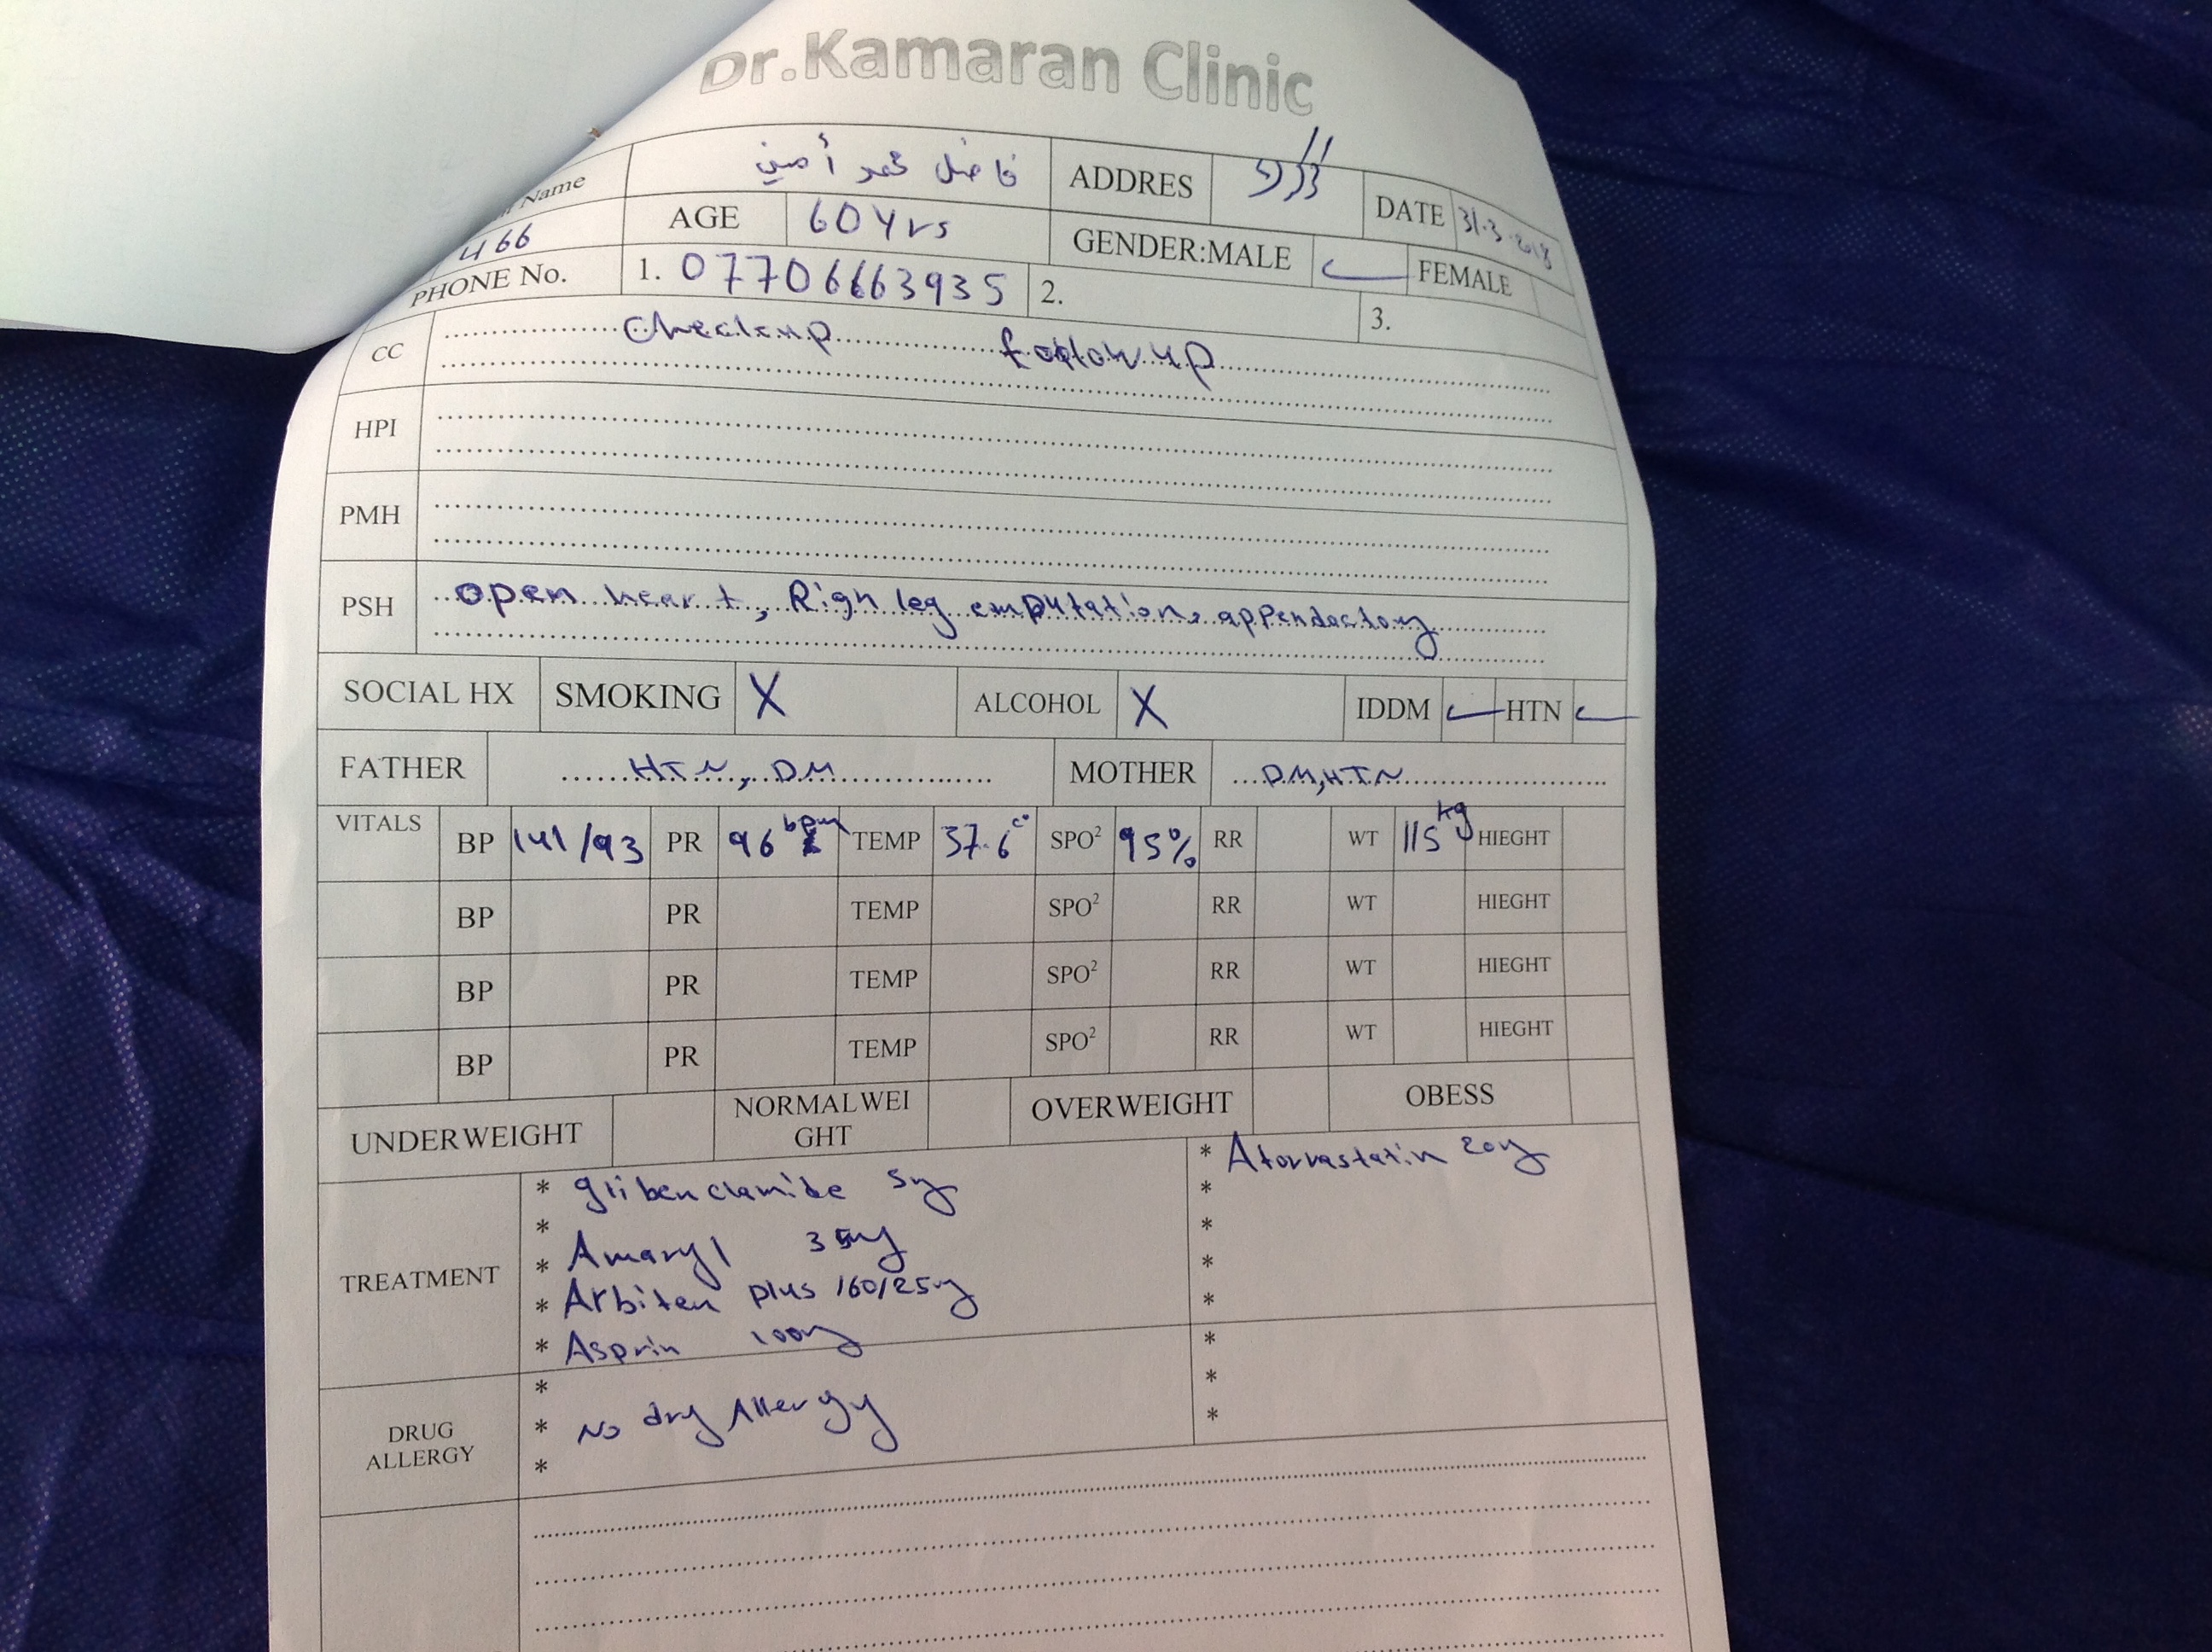 Dr.Kamaran Clinic
Name فاضل محمد أمين ADDRES DATE 31.3.2018
466 AGE 60 Yrs GENDER:MALE FEMALE
PHONE No. 1. 07706663935 2. 3.
CC Checkup follow up
HPI
PMH
PSH open heart, Righ leg emputation, appendectomy
SOCIAL HX SMOKING X ALCOHOL X IDDM HTN
FATHER HTN, DM MOTHER DM, HTN
VITALS BP 141/93 PR 96 bpm TEMP 37.6 c° SPO² 95% RR WT 115 kg HIEGHT
BP PR TEMP SPO² RR WT HIEGHT
BP PR TEMP SPO² RR WT HIEGHT
BP PR TEMP SPO² RR WT HIEGHT
UNDERWEIGHT NORMALWEI
GHT OVERWEIGHT OBESS
TREATMENT
* glibenclamide 5mg
*
* Amaryl
* Arbiten plus 160/25mg
* Asprin 100mg
* Atorvastatin 20mg
*
*
*
*
DRUG
ALLERGY
*
* No drug Allergy
*
*
*
*